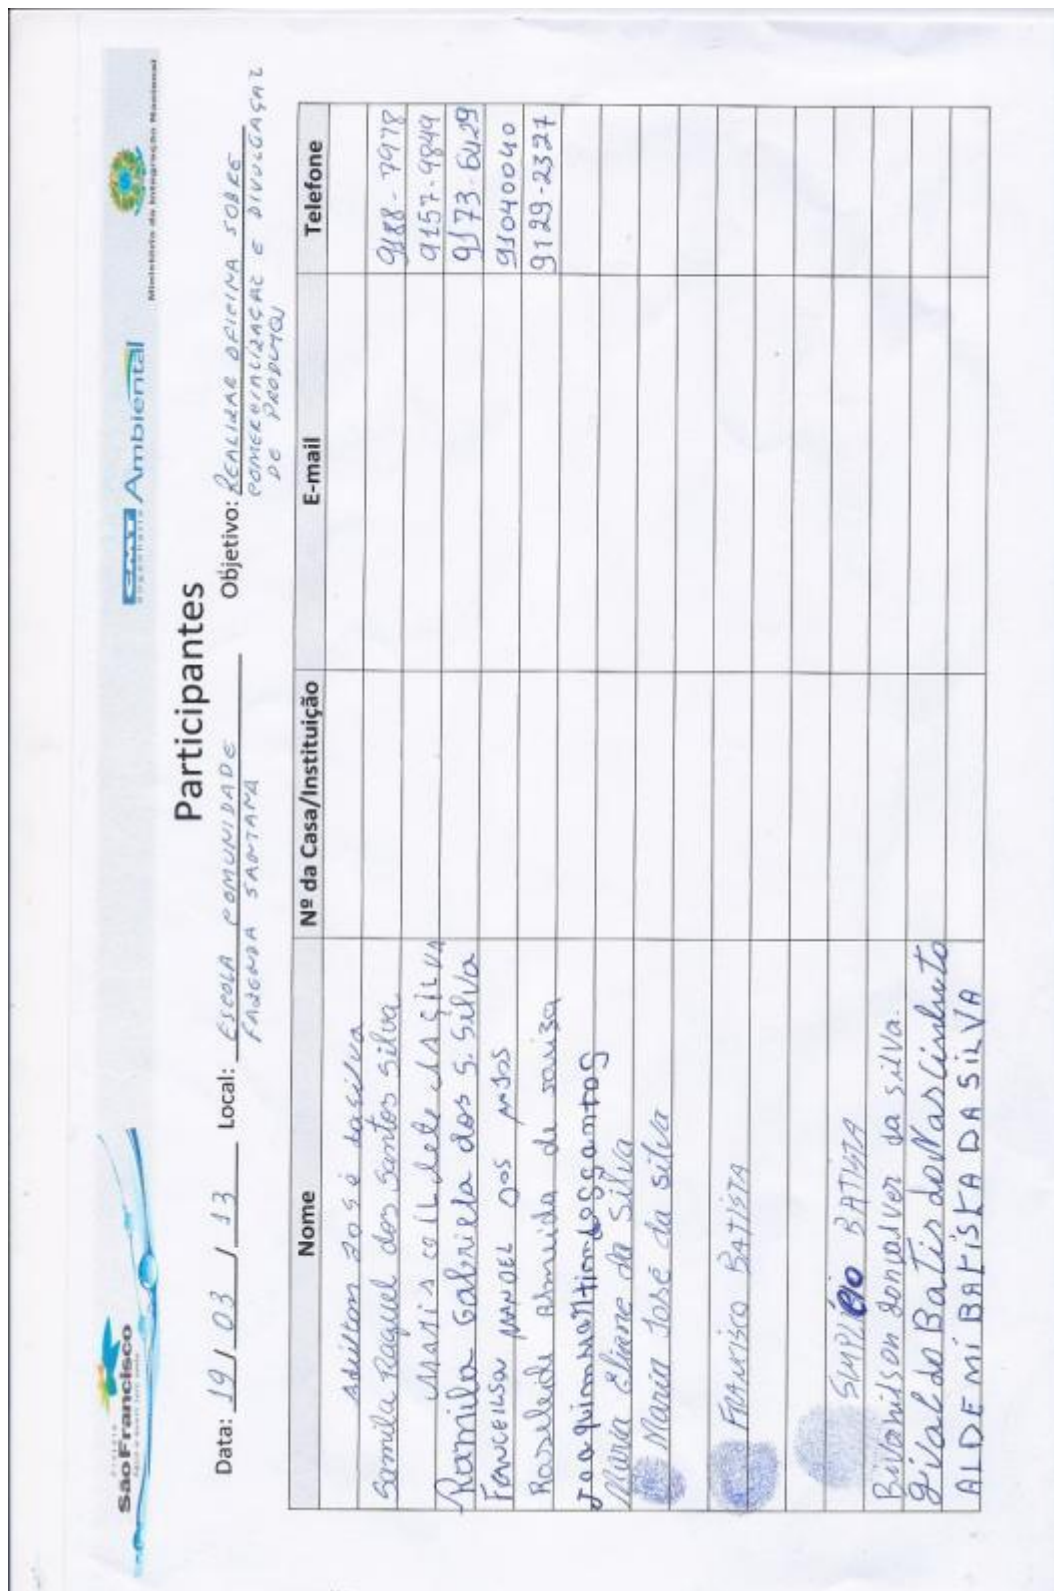 São Francisco
CMT Ambiental
Engenharia
Ministério da Integração Nacional
Participantes
Data: 19 / 03 / 13 Local: ESCOLA COMUNIDADE Objetivo: REALIZAR OFICINA SOBRE
FAZENDA SANTANA COMERCIALIZAÇÃO E DIVULGAÇÃO
DE PRODUTOS
Nome Nº da Casa/Instituição E-mail Telefone
Adeilton José da silva
Samila Raquel dos Santos Silva 9188-7978
da SILVA 9157-9849
Ramila Gabriela dos S. Silva 9173-6429
MANOEL DOS ANJOS 91040040
Roseleide Almeida de souza 9129-2327
Joaquim dos santos
Maria Eliane da Silva
Maria José da silva
FRANCISCO BATISTA
SIMPLÍCIO BATISTA
gonçalver da silva.
Givaldo Batis do Nascimento
ALDEMI BATISTA DA SILVA